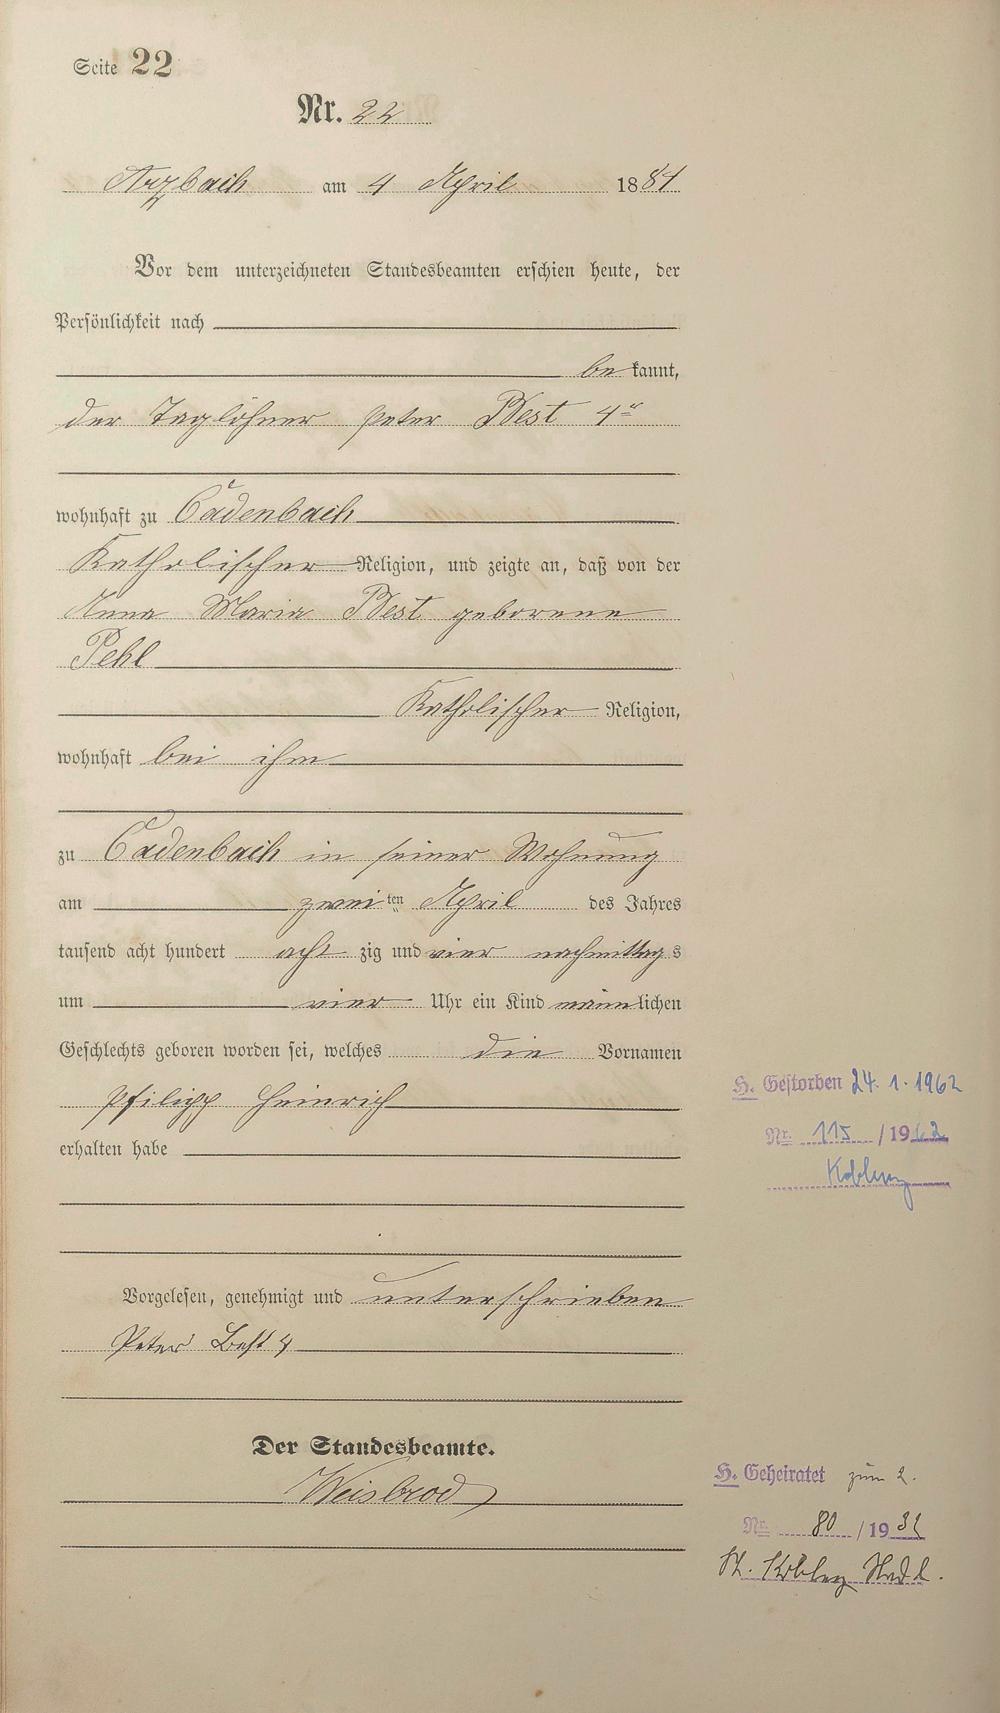 Seite 22
Nr. 22
Arzbach am 4 April 1884
Vor dem unterzeichneten Standesbeamten erschien heute, der
Persönlichkeit nach
bekannt,
der Taglöhner Peter Best 4r
wohnhaft zu Cadenbach
Katholischer Religion, und zeigte an, daß von der
Anna Maria Best geborene
Pehl
Katholischer Religion,
wohnhaft bei ihm
zu Cadenbach in seiner Wohnung
am zweiten April des Jahres
tausend acht hundert achtzig und vier nachmittags
um vier Uhr ein Kind männlichen
Geschlechts geboren worden sei, welches die Vornamen
Philipp Heinrich
erhalten habe
H. Gestorben 24.1.1962
Nr. 115 / 1962
Koblenz
Vorgelesen, genehmigt und unterschrieben
Peter Best 4
Der Standesbeamte.
Weisbrod
H. Geheiratet zum 2.
Nr. 80 / 1932
St. Koblenz